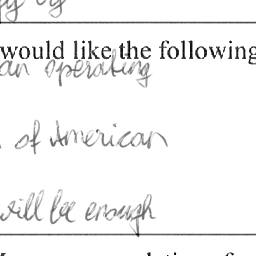 would like the following
an operating
of American
will be enough